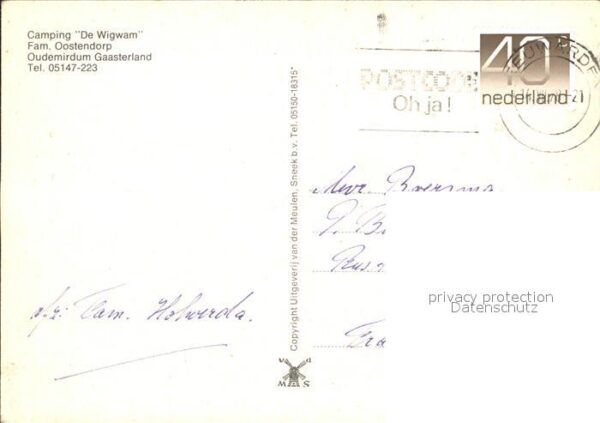 Camping "De Wigwam"
Fam. Oostendorp
Oudemirdum Gaasterland
Tel. 05147-223
40c
nederland
LEEUWARDEN
POSTCODE
Oh ja!
Copyright Uitgeverij van der Meulen, Sneek b.v. Tel. 05150-18315*
Mevr. Boersma
privacy protection
Datenschutz
afz: Fam. Holwerda.
v d
M S